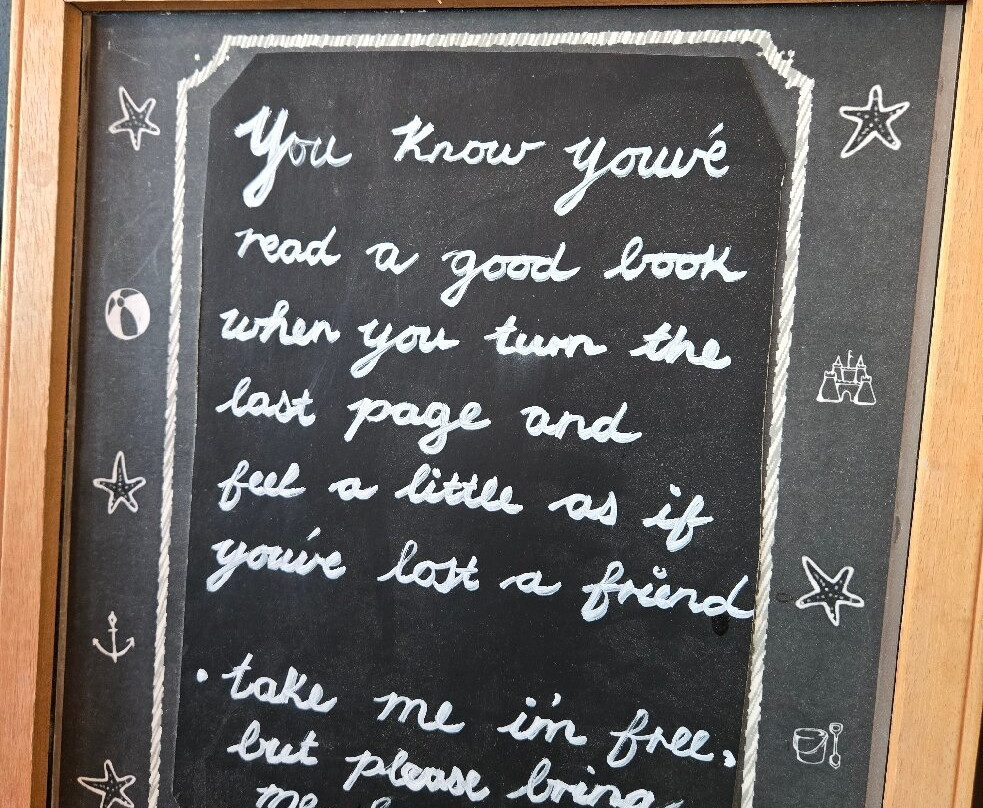 You Know you've
read a good book
when you turn the
last page and
feel a little as if
you've lost a friend
. take me i'm free.
but please bring
me